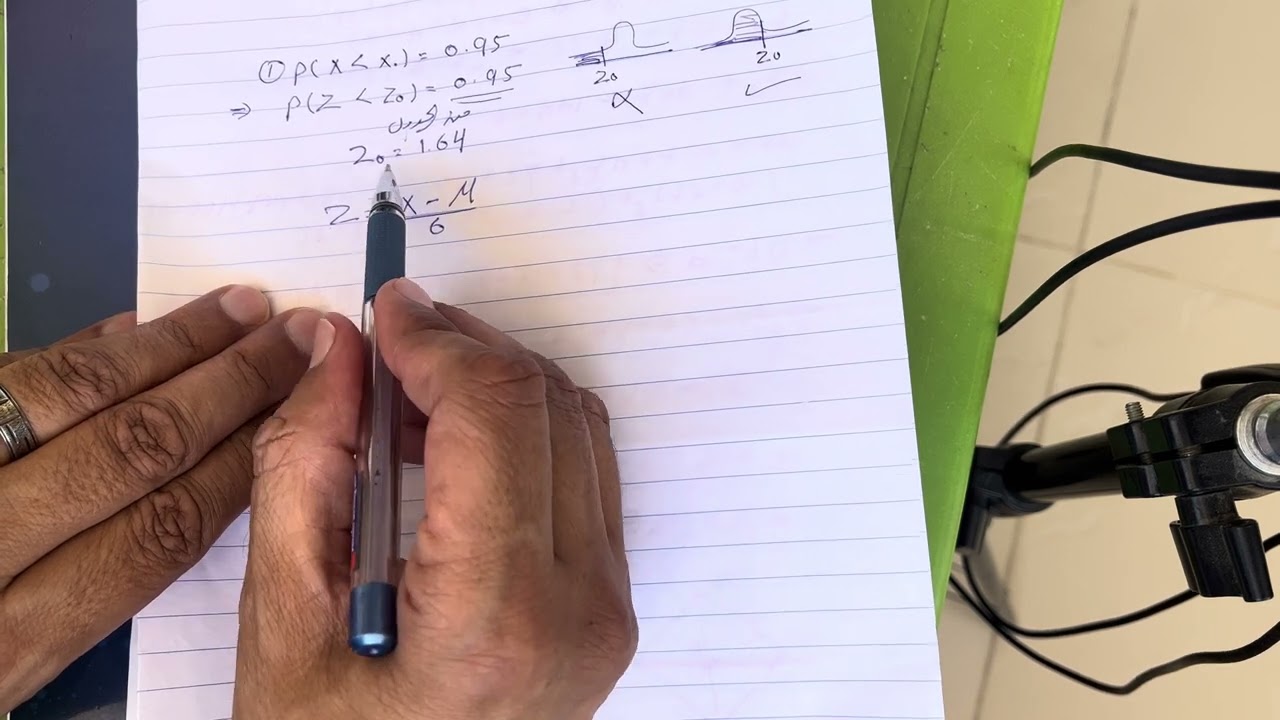 ① P(X < X₀) = 0.95
⇒ P(Z < Z₀) = 0.95
من الجدول
Z₀ = 1.64
Z = X - M / 6
Z₀
X
Z₀
✓